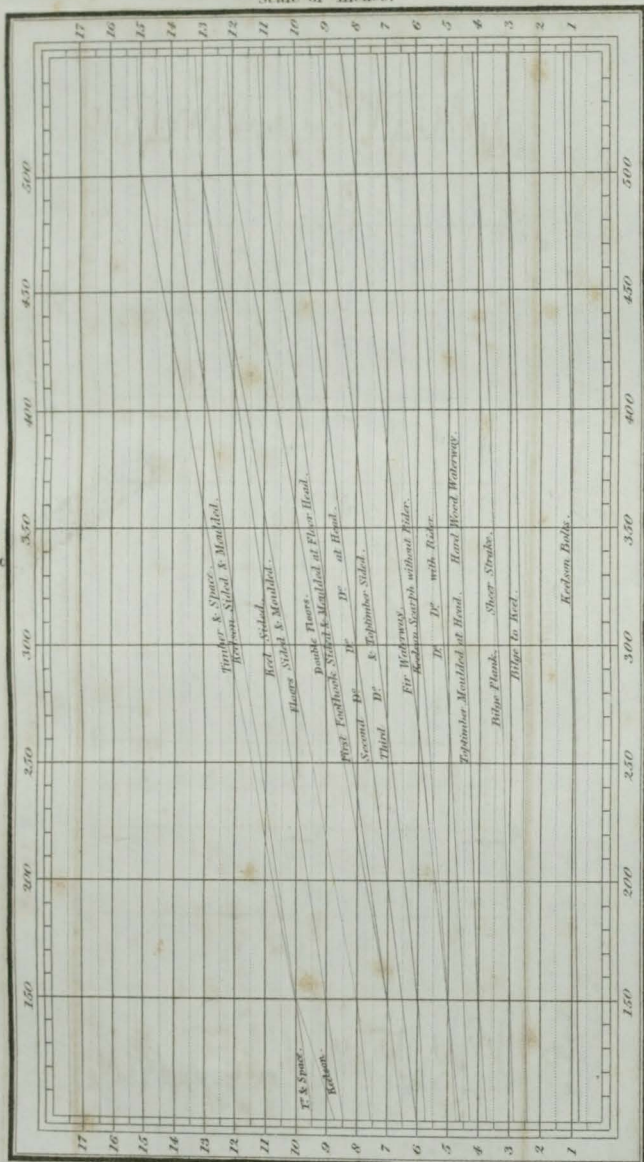 17 16 15 14 13 12 11 10 9 8 7 6 5 4 3 2 1
500
450
400
350
300
250
200
150
Timber & Space.
Keelson Sided & Moulded.
Keel Sided.
Floors Sided & Moulded.
Double Floors.
First Foothook Sided & Moulded at Floor Head.
Second Do. Do. Do. at Head.
Third Do. & Toptimber Sided.
Fir Waterway.
Keelson Scarph without Rider.
Do. Do. with Rider.
Toptimber Moulded at Head. Hard Wood Waterway.
Bilge Plank. Sheer Strake.
Bilge to Keel.
Keelson Bolts.
Tr. & Space.
Keelson.
500
450
400
350
300
250
200
150
17 16 15 14 13 12 11 10 9 8 7 6 5 4 3 2 1